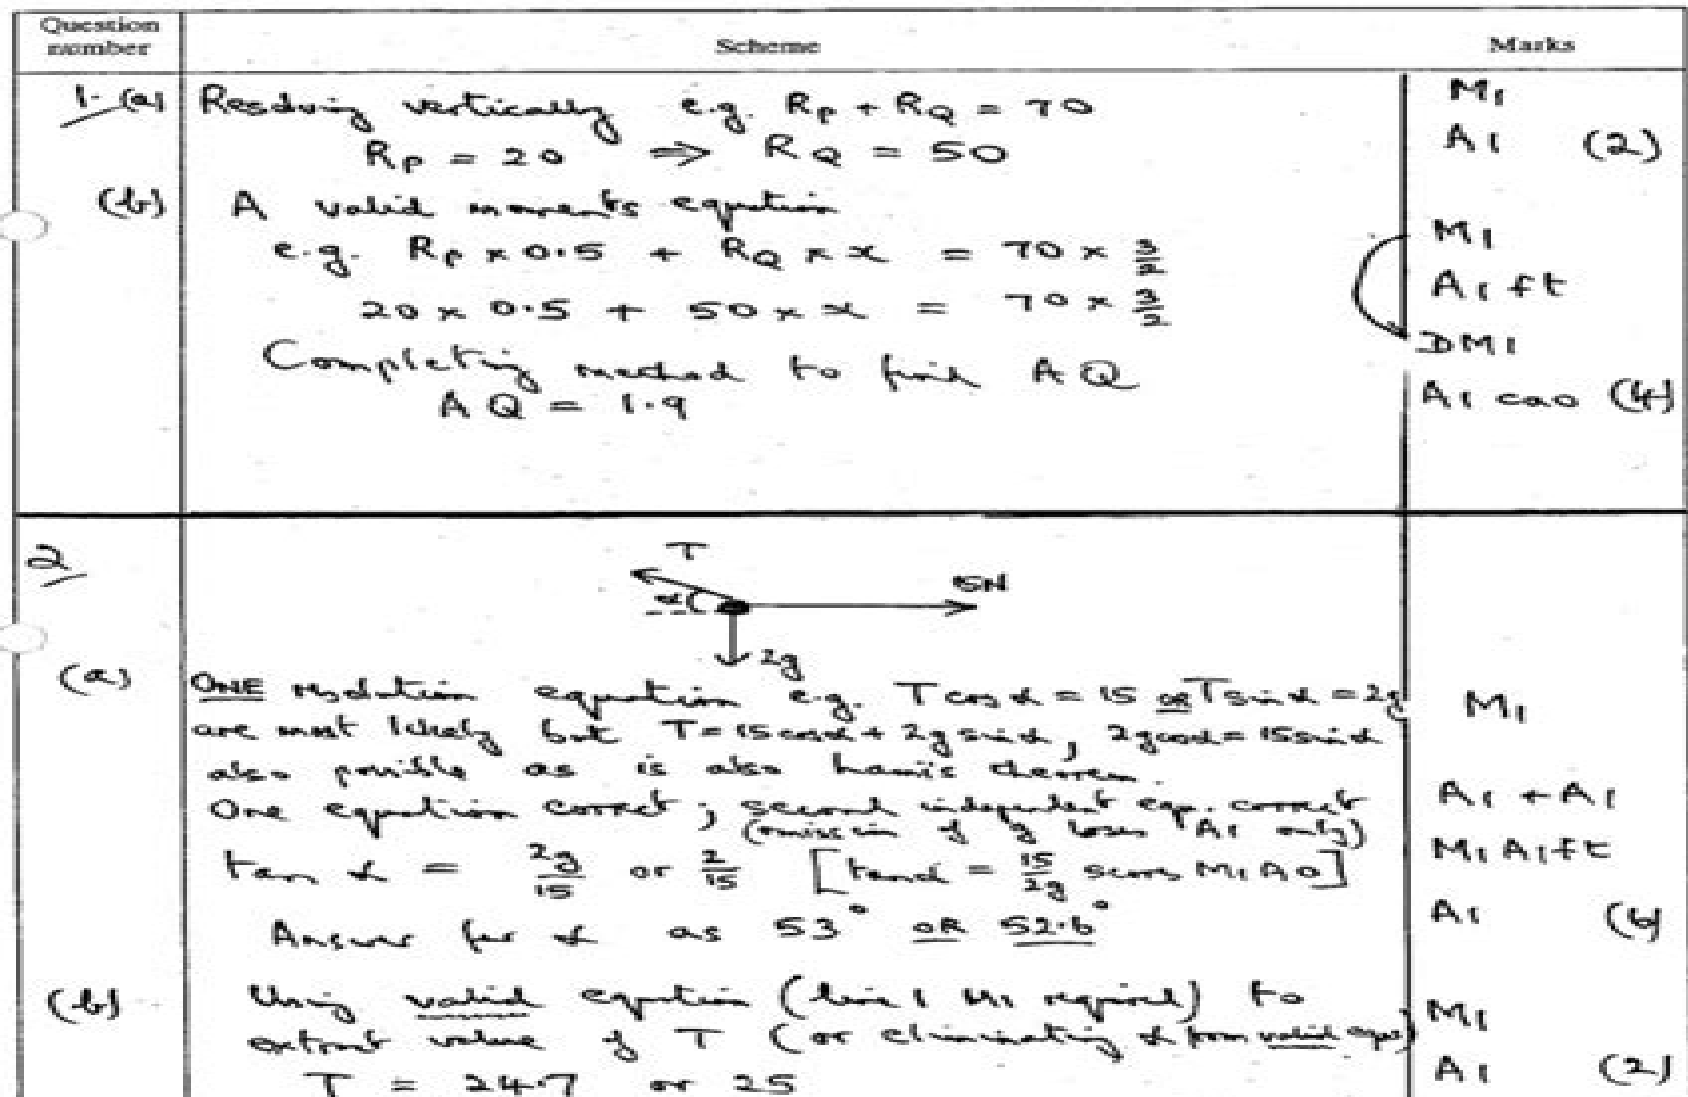 Question number Scheme Marks
1. (a) Resolving vertically e.g. Rp + RQ = 70 M1
Rp = 20 ⇒ RQ = 50 A1 (2)
(b) A valid moments equation
e.g. Rp × 0.5 + RQ × x = 70 × 3/2 M1
20 × 0.5 + 50 × x = 70 × 3/2 A1 ft
Completing method to find AQ DM1
AQ = 1.9 A1 cao (4)
2
T
α 15N
2g
(a) ONE resolution equation e.g. T cos α = 15 or T sin α = 2g M1
are most likely but T = 15 cos α + 2g sin α, 2g cos α = 15 sin α
also possible as is also Lami's theorem.
One equation correct; second independent eqn. correct A1 + A1
(omission of g loses A1 only)
tan α = 2g/15 or 2/15 [tan α = 15/2g scores M1 A0] M1 A1 ft
Answer for α as 53° OR 52.6° A1 (6)
(b) Using valid equation (line 1 M1 required) to
extract value of T (or eliminating α from valid eqns) M1
T = 24.7 or 25 A1 (2)